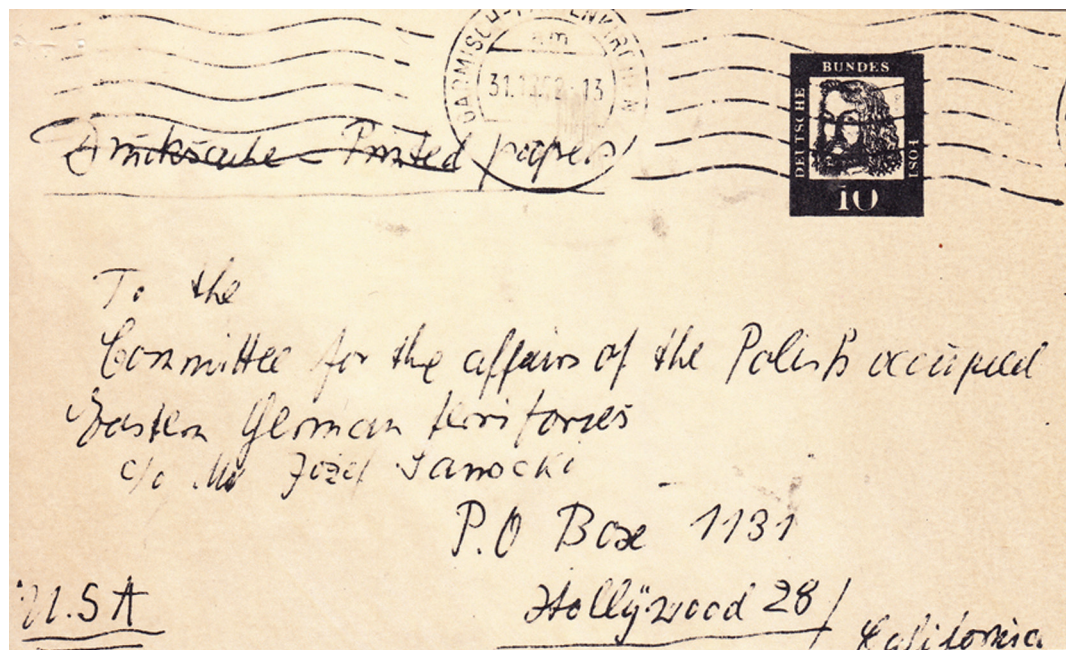 GARMISCH-PARTENKIRCHEN
am
31.12.62-13
BUNDES
DEUTSCHE
POST
10
Drucksache - Printed paper
To the
Committee for the affairs of the Polish occupied
Eastern German territories
c/o Mr Józef Sanocki
P.O Box 1131
Hollywood 28/
California
U.S.A